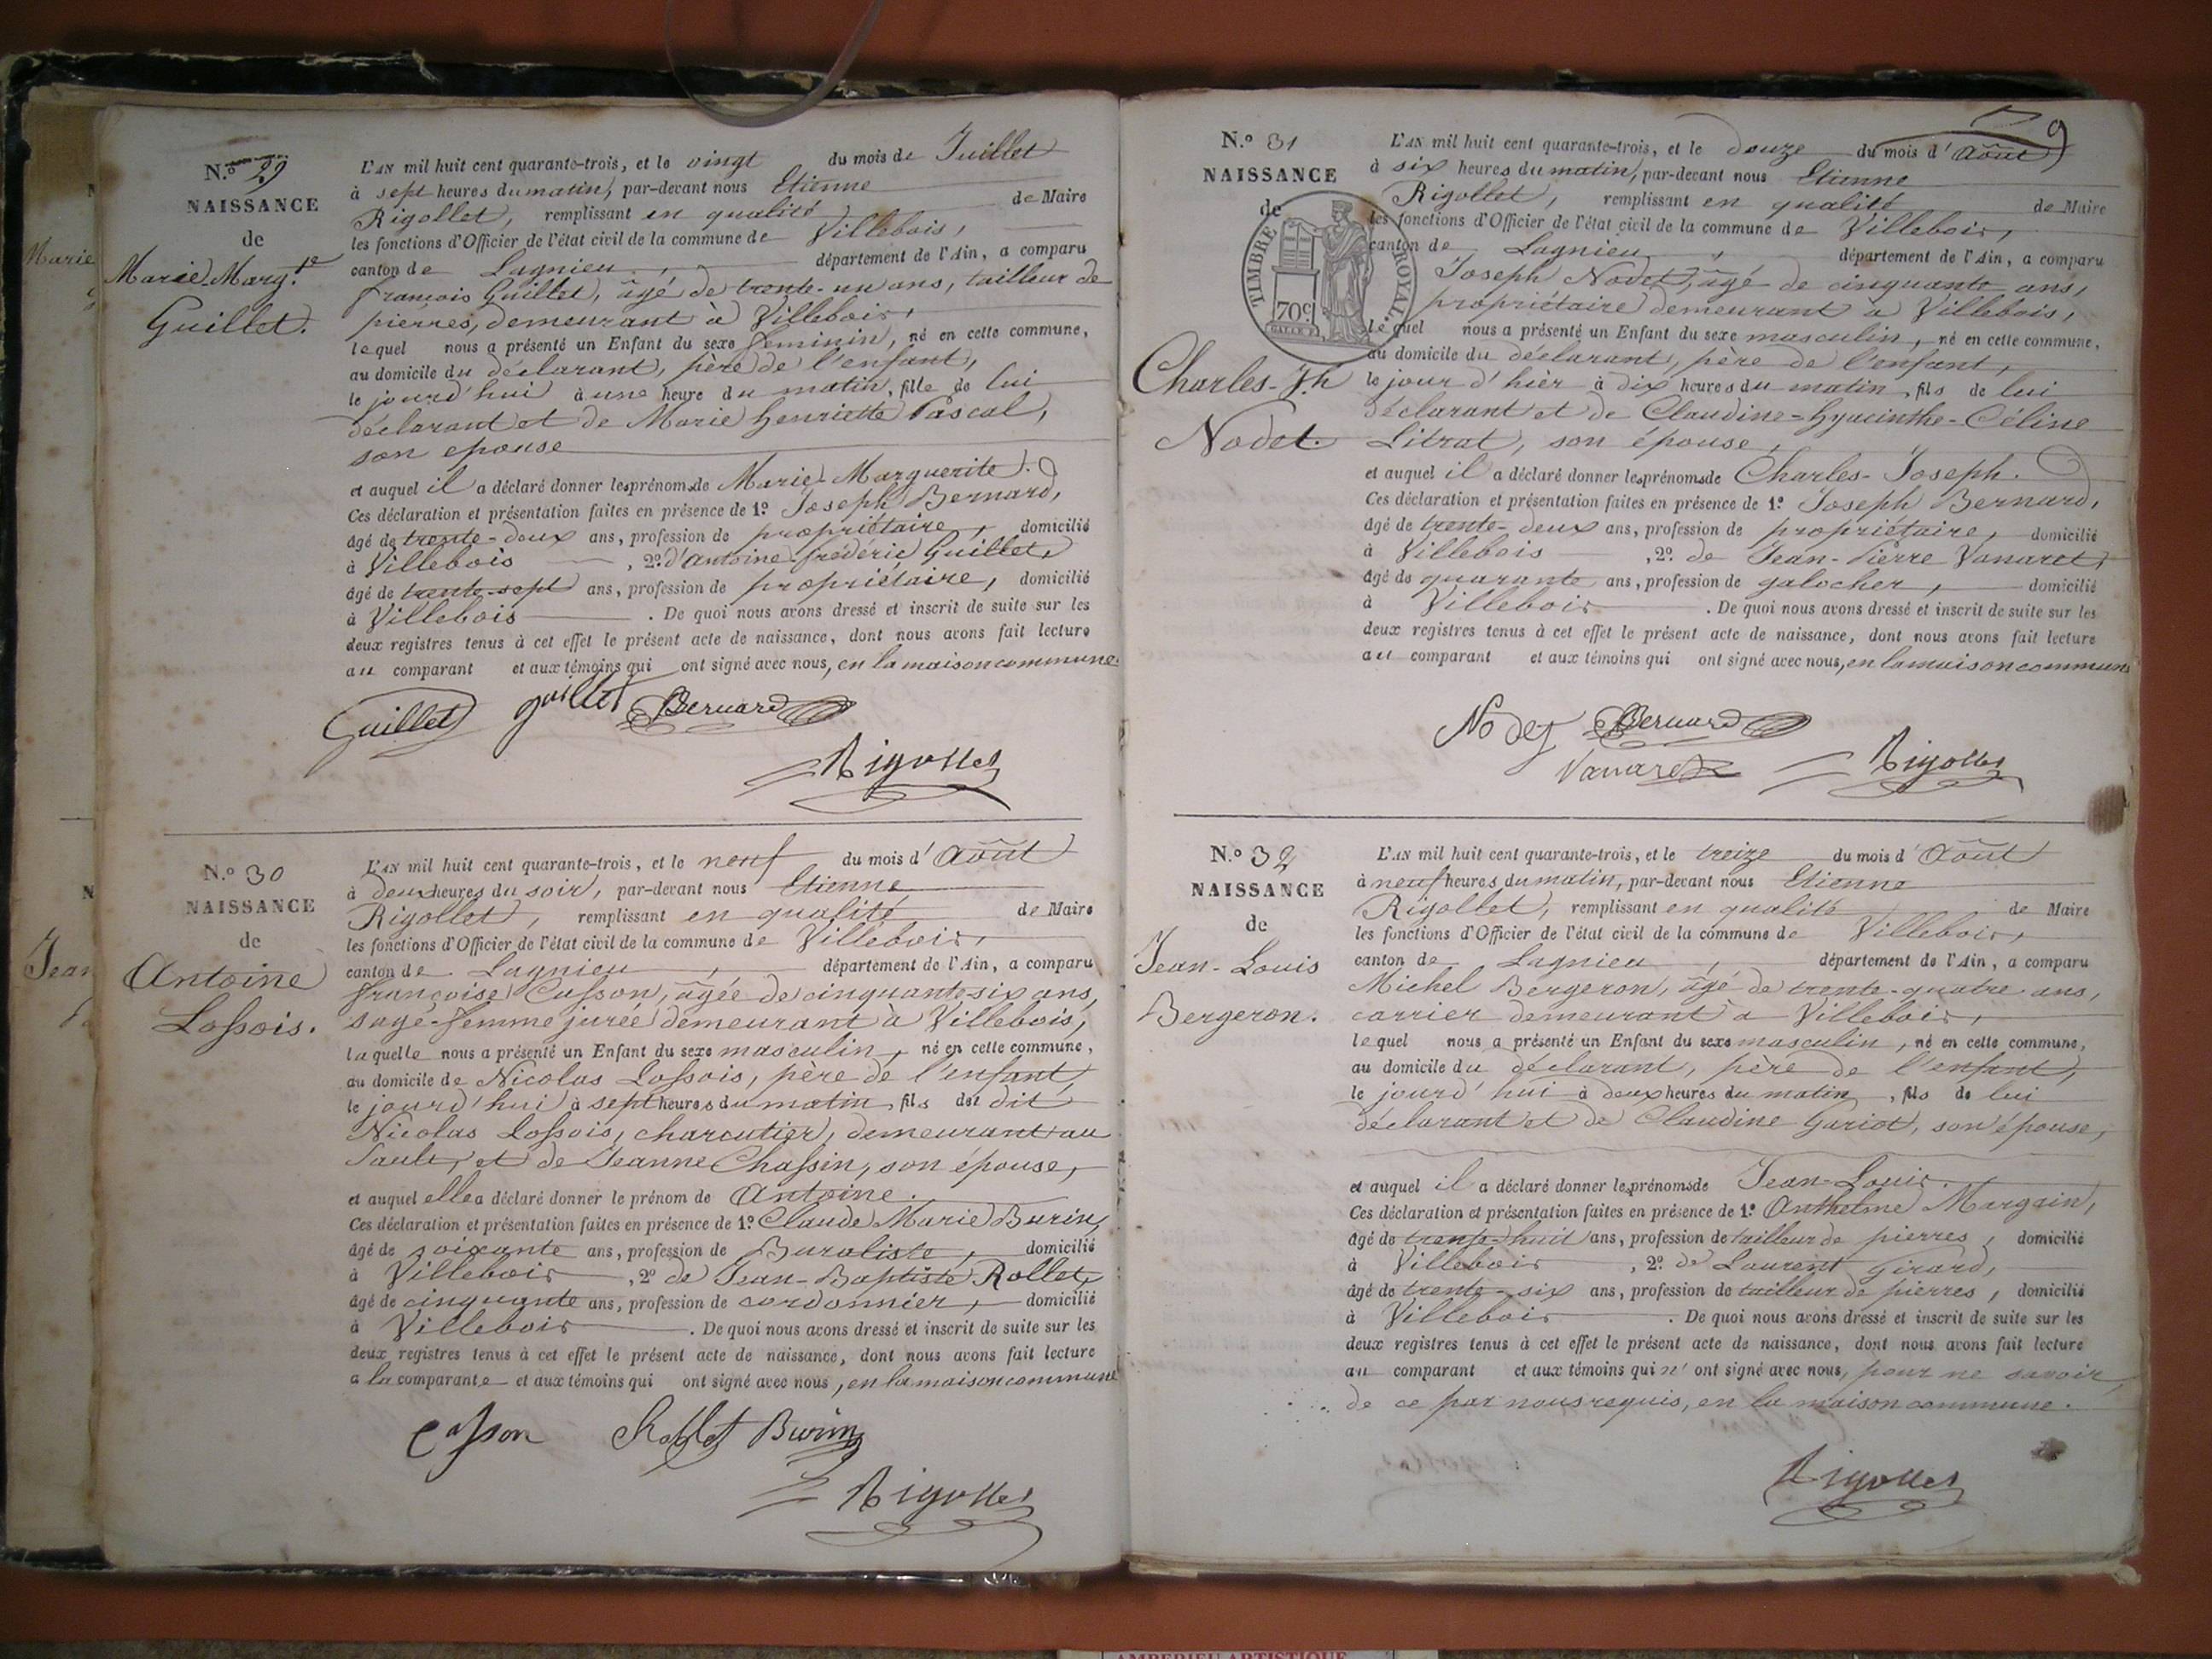 N.º 29
NAISSANCE
de
Marie-Marg.te
Guillet.
L'AN mil huit cent quarante-trois, et le vingt du mois de Juillet
à sept heures du matin, par-devant nous Etienne
Rigollet, remplissant en qualité de Maire
les fonctions d'Officier de l'état civil de la commune de Villebois,
canton de Lagnieu, département de l'Ain, a comparu
françois Guillet, âgé de trente-un ans, tailleur de
pierres, demeurant à Villebois,
lequel nous a présenté un Enfant du sexe feminin, né en cette commune,
au domicile du déclarant, père de l'enfant,
le jourd'hui à une heure du matin, fille de lui
déclarant et de Marie henriette Pascal,
son epouse
et auquel il a déclaré donner les prénoms de Marie-Marguerite.
Ces déclaration et présentation faites en présence de 1º Joseph Bernard,
âgé de trente-deux ans, profession de propriétaire, domicilié
à Villebois, 2º d'Antoine frédéric Guillet,
âgé de trente-sept ans, profession de propriétaire, domicilié
à Villebois. De quoi nous avons dressé et inscrit de suite sur les
deux registres tenus à cet effet le présent acte de naissance, dont nous avons fait lecture
au comparant et aux témoins qui ont signé avec nous, en la maison commune.
Guillet guillet Bernard
Rigollet
N.º 30
NAISSANCE
de
Antoine
Lossois.
L'AN mil huit cent quarante-trois, et le neuf du mois d'Août
à deux heures du soir, par-devant nous Etienne
Rigollet, remplissant en qualité de Maire
les fonctions d'Officier de l'état civil de la commune de Villebois,
canton de Lagnieu, département de l'Ain, a comparu
françoise Casson, âgée de cinquante-six ans,
sage-femme jurée demeurant à Villebois,
laquelle nous a présenté un Enfant du sexe masculin, né en cette commune,
au domicile de Nicolas Lossois, père de l'enfant,
le jourd'hui à sept heures du matin, fils du dit
Nicolas Lossois, charcutier, demeurant au
Sault, et de Jeanne Chassin, son épouse,
et auquel elle a déclaré donner le prénom de Antoine.
Ces déclaration et présentation faites en présence de 1º Claude Marie Burin,
âgé de soixante ans, profession de Buraliste, domicilié
à Villebois, 2º de Jean-Baptiste Rollet,
âgé de cinquante ans, profession de cordonnier, domicilié
à Villebois. De quoi nous avons dressé et inscrit de suite sur les
deux registres tenus à cet effet le présent acte de naissance, dont nous avons fait lecture
a la comparante et aux témoins qui ont signé avec nous, en la maison commune
Casson Rollet Burin
Rigollet
9
N.º 31
NAISSANCE
de
TIMBRE ROYAL
70c
Charles-Jh
Nodet.
L'AN mil huit cent quarante-trois, et le douze du mois d'Août
à six heures du matin, par-devant nous Etienne
Rigollet, remplissant en qualité de Maire
les fonctions d'Officier de l'état civil de la commune de Villebois,
canton de Lagnieu, département de l'Ain, a comparu
Joseph Nodet, âgé de cinquante ans,
propriétaire demeurant à Villebois,
lequel nous a présenté un Enfant du sexe masculin, né en cette commune,
au domicile du déclarant, père de l'enfant,
le jour d'hier à dix heures du matin, fils de lui
déclarant et de Claudine-hyacinthe-Céline
Litrat, son épouse,
et auquel il a déclaré donner les prénoms de Charles-Joseph.
Ces déclaration et présentation faites en présence de 1º Joseph Bernard,
âgé de trente-deux ans, profession de propriétaire, domicilié
à Villebois, 2º de Jean-Pierre Vanaret,
âgé de quarante ans, profession de galocher, domicilié
à Villebois. De quoi nous avons dressé et inscrit de suite sur les
deux registres tenus à cet effet le présent acte de naissance, dont nous avons fait lecture
au comparant et aux témoins qui ont signé avec nous, en la maison commune
Nodet Bernard
Vanaret Rigollet
N.º 32
NAISSANCE
de
Jean-Louis
Bergeron.
L'AN mil huit cent quarante-trois, et le treize du mois d'Août
à neuf heures du matin, par-devant nous Etienne
Rigollet, remplissant en qualité de Maire
les fonctions d'Officier de l'état civil de la commune de Villebois,
canton de Lagnieu, département de l'Ain, a comparu
Michel Bergeron, âgé de trente-quatre ans,
carrier demeurant à Villebois,
lequel nous a présenté un Enfant du sexe masculin, né en cette commune,
au domicile du déclarant, père de l'enfant,
le jourd'hui à deux heures du matin, fils de lui
déclarant et de Claudine Gariot, son épouse,
et auquel il a déclaré donner les prénoms de Jean-Louis.
Ces déclaration et présentation faites en présence de 1º Anthelme Margain,
âgé de trente-huit ans, profession de tailleur de pierres, domicilié
à Villebois, 2º de Laurent Girard,
âgé de trente-six ans, profession de tailleur de pierres, domicilié
à Villebois. De quoi nous avons dressé et inscrit de suite sur les
deux registres tenus à cet effet le présent acte de naissance, dont nous avons fait lecture
au comparant et aux témoins qui n'ont signé avec nous, pour ne savoir,
de ce par nous requis, en la maison commune.
Rigollet
AMBERIEU ARTISTIQUE